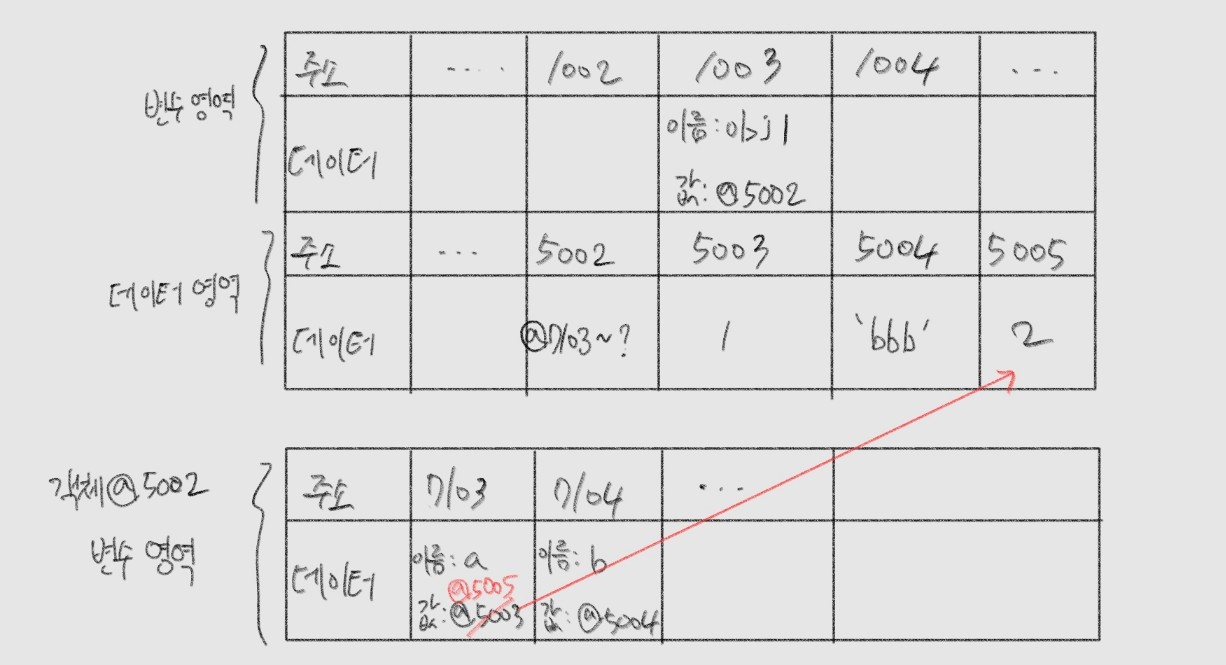 변수 영역
주소 ···· 1002 1003 1004 ···
데이터
이름: obj1
값: @5002
데이터 영역
주소 ··· 5002 5003 5004 5005
데이터 @7103~? 1 'bbb' 2
객체@5002
변수 영역
주소 7103 7104 ···
데이터
이름: a 이름: b
@5005
값: @5003 값: @5004